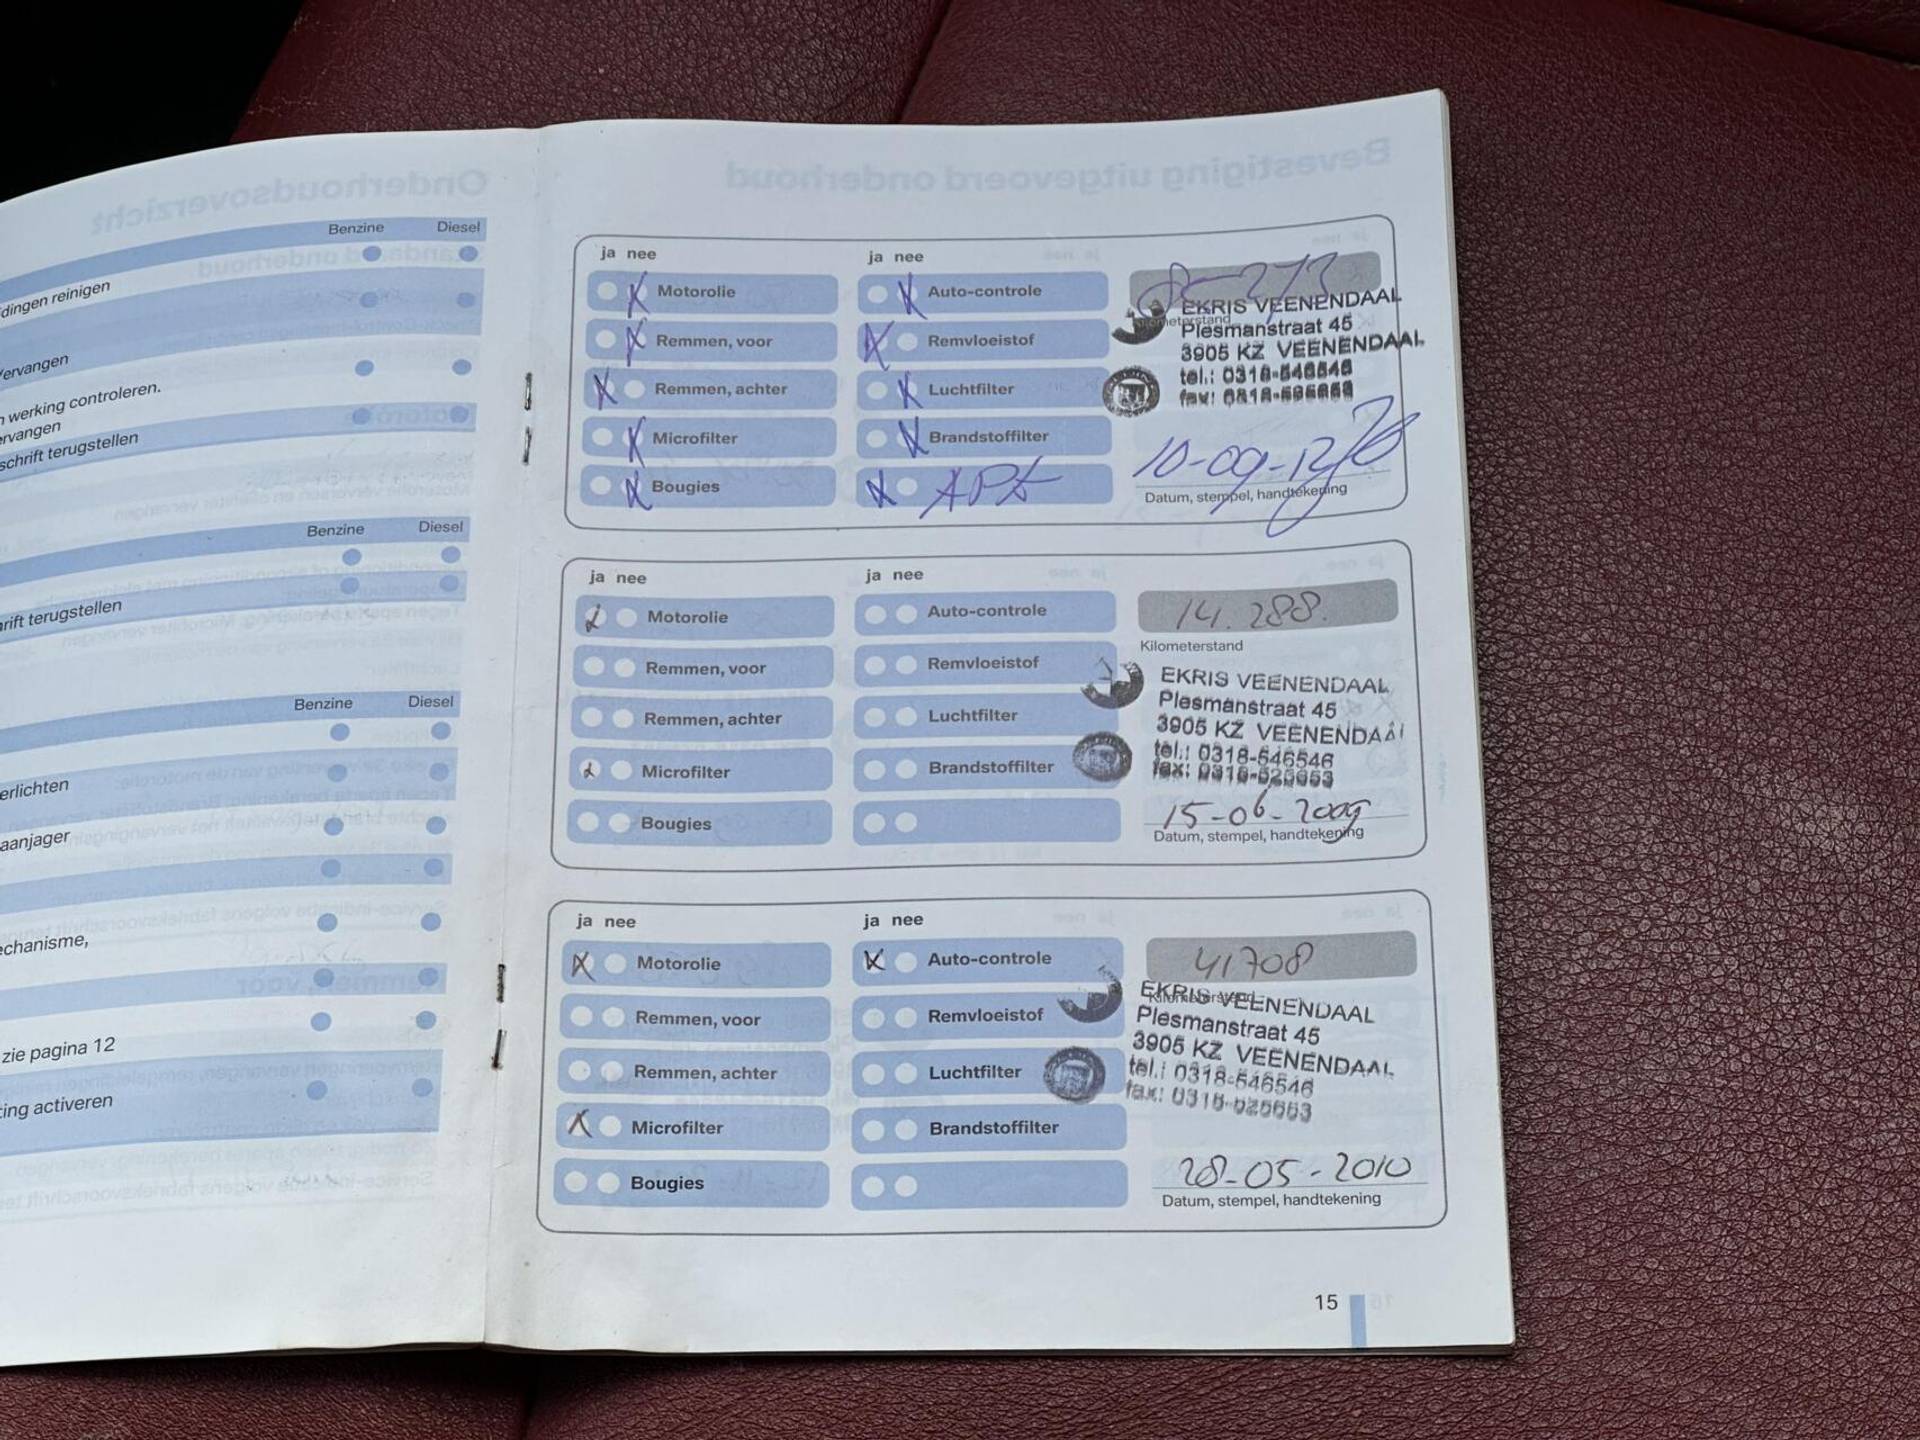 Benzine Diesel
dingen reinigen
ervangen
n werking controleren.
ervangen
schrift terugstellen
Benzine Diesel
rift terugstellen
Benzine Diesel
erlichten
aanjager
echanisme,
zie pagina 12
ting activeren
Onderhoudsoverzicht
Bevestiging uitgevoerd onderhoud
ja nee
ja nee
Motorolie
Auto-controle
Remmen, voor
Remvloeistof
Remmen, achter
Luchtfilter
Microfilter
Brandstoffilter
Bougies
APK
Kilometerstand
EKRIS VEENENDAAL
Plesmanstraat 45
3905 KZ VEENENDAAL
tel.: 0318-546546
10-09-12
Datum, stempel, handtekening
ja nee
ja nee
Motorolie
Auto-controle
Remmen, voor
Remvloeistof
Remmen, achter
Luchtfilter
Microfilter
Brandstoffilter
Bougies
14.288.
Kilometerstand
EKRIS VEENENDAAL
Plesmanstraat 45
3905 KZ VEENENDAAL
tel.: 0318-546546
15-06-2009
Datum, stempel, handtekening
ja nee
ja nee
Motorolie
Auto-controle
Remmen, voor
Remvloeistof
Remmen, achter
Luchtfilter
Microfilter
Brandstoffilter
Bougies
41708
Kilometerstand
EKRIS VEENENDAAL
Plesmanstraat 45
3905 KZ VEENENDAAL
tel.: 0318-546546
28-05-2010
Datum, stempel, handtekening
15